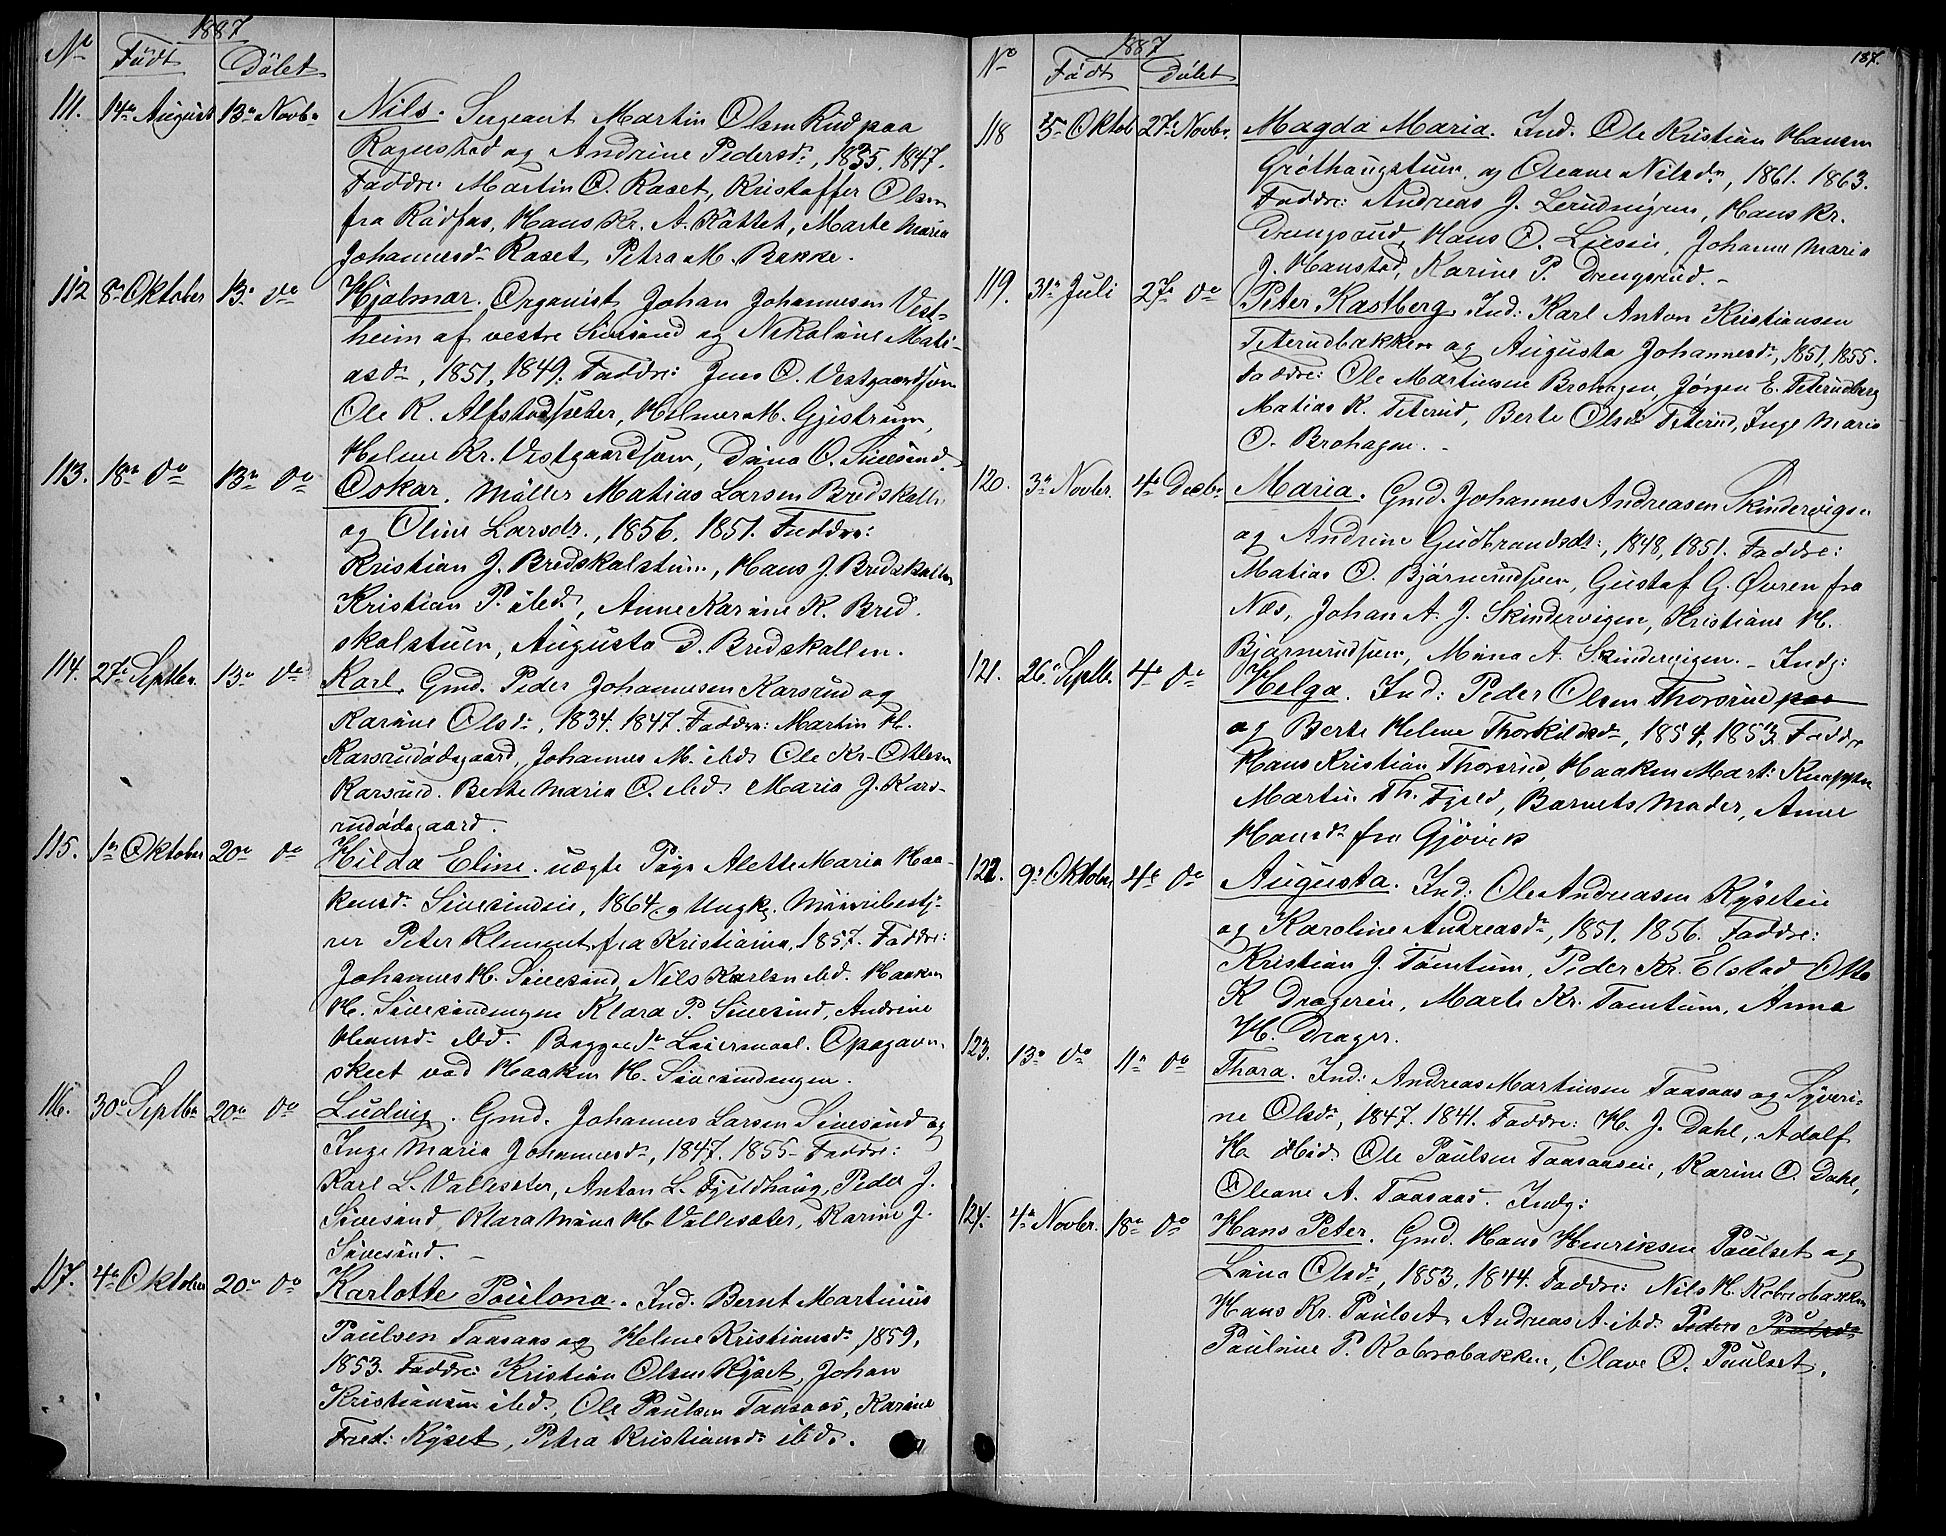 1887
No Födt Dölet
111. 14de August 13de Novbr
Nils. Sergeant Martin Olsen Rud paa
Ragustad og Andrine Pedersdr, 1835. 1847.
Faddre: Martin O. Raset, Kristoffer Olsen
fra Rådfas, Hans Kr. A. Rättet, Marte Maria
Johannesdr Raset, Petra M. Bakke.
112 8de Oktober 13de do
Hjalmar. Organist Johan Johannesen Vest-
heim af vestre Sivesind og Nikoline Mati-
asdr, 1851, 1849. Faddre: Jens O. Vestgaardsven
Ole K. Alfstadsæter, Helmer M. Gjistrum,
Helene Kr. Vestgaardsven, Dina O. Sivesind.
113. 18de do 13de do
Oskar. Möller Matias Larsen Bredskallen
og Oline Larsdr., 1856. 1851. Faddre:
Kristian J. Bredskalstuen, Hans J. Bredskallen
Kristian P. ibd., Anne Karine K. Bred-
skalstuen, Augusta D. Bredskallen.
114. 27de Septbr. 13de do
Karl. Gmd. Peder Johannesen Karsrud og
Karine Olsdr, 1834. 1847. Faddre: Martin H.
Karsrudödegaard, Johannes M. ibd. Ole Kr. Ottesen
Karsrud. Berte Maria O. ibd. Maria J. Kars-
rudödegaard.
115. 1de Oktober 20de do
Hilda Eline. uægte Pige Alette Maria Haa-
kensdr Sivesindeie, 1864 og Ungk. Murerbestj-
rer Peter Klement fra Kristiania, 1857. Faddre:
Johannes H. Sivesind, Nils Karlsen ibd. Haaken
H. Sivesindengen Klara P. Sivesind, Andrine
Hansdr ibd. Begges 1de Leiermaal. Opgaven
skeet ved Haaken H. Sivesindengen.
116. 30de Septbr 20de do
Ludvig. Gmd. Johannes Larsen Sivesind og
Inge Maria Johannesdr, 1847. 1855. Faddre:
Karl L. Vallesæter, Anton L. Fjeldhaug, Peder J.
Sivesind, Klara Mine H. Vallesæter, Karine J.
Sivesind.
117. 4de Oktober 20de do
Karlotte Paulona. Ind. Bernt Martinus
Paulsen Taasaas og Helene Kristiansdr, 1859,
1853. Faddre: Kristian Olsen Ryset, Johan
Kristiansen ibd., Ole Paulsen Taasaas, Karine
Fred: Ryset, Petra Kristiansdr ibd.
187.
1887
No Födt Dölet
118 25de Oktob 27de Novbr.
Magda Maria. Ind. Ole Kristian Hansen
Gröthaugstuen og Oleane Nilsdr, 1861. 1863.
Faddre: Andreas J. Lerudvigen, Hans Kr.
Drengsrud, Hans O. Lieseie, Johanne Maria
J. Hanstad, Karine P. Drengsrud.
119. 31de Juli 27de do
Peter Kastberg. Ind: Karl Anton Kristiansen
Teterudbakken og Augusta Johannesdr, 1851. 1855.
Faddre: Ole Martinsen Brohagen, Jörgen E. Teterudberg
Matias K. Teterud, Berte Olsdr Teterud, Inge Maria
O. Brohagen.
120. 3de Novbr. 4de Decbr
Maria. Gmd. Johannes Andreasen Skindervigen
og Andrine Gudbrandsdr:, 1848, 1851. Faddre:
Matias O. Björnerudsven, Gustaf G. Övren fra
Næs, Johan A. J. Skindervigen, Kristiane H.
Björnerudsven, Mina A. Skindervigen. - Indg:
121. 26de Septbr. 4de do
Helga. Ind: Peder Olsen Thorsrud paa
og Berte Helene Thorkildsdr, 1854, 1853. Faddre
Hans Kristian Thorsrud, Haaken Mart: Knappen
Martin Th. Fjeld, Barnets Moder, Anne
Hansdr fra Gjövik
122. 9de Oktober 4de do
Augusta. Ind: Ole Andreasen Ryseteie
og Karoline Andreasdr, 1851. 1856. Faddre:
Kristian J. Tømtum, Peder Kr. Elstad Otto
K Dragereie, Marte Kr. Tømtum, Anna
H. Drager.
123. 13de do 11de do
Thora. Ind: Andreas Martinsen Taasaas og Syveri-
ne Olsdr, 1847. 1841. Faddre: H. J. Dahl, Adolf
H. ibid. Ole Paulsen Taasaaseie, Karine O. Dahl,
Oleane A. Taasaas. Indg:
124. 4de Novbr. 18de do
Hans Peter. Gmd. Hans Henriksen Paulset og
Lina Olsdr, 1853, 1844. Faddre: Nils H. Robrobakken
Hans Kr. Paulset, Andreas A. ibd. Peders Paulsdr
Pauline P. Robrobakken, Olave O. Paulset.